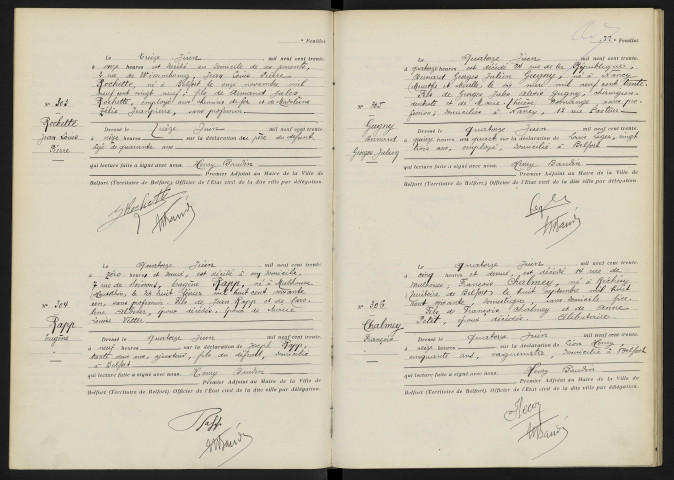 Feuillet
Le Treize Juin mil neuf cent trente.
à onze heures et demie au domicile de ses parents,
rue de Jean Louis Pierre
Rochette, né à Belfort le onze novembre mil
neuf cent vingt neuf, fils de Armand Jules
Rochette, employé aux chemins de fer et de Madeleine
sans profession
N° 303
Rochette
Jean Louis
Pierre
Dressé le Treize Juin mil neuf cent trente.
à heures sur la déclaration du père du défunt
âgé de quarante ans
qui lecture faite a signé avec nous. Henry Baudin
Premier Adjoint au Maire de la Ville de
Belfort (Territoire de Belfort), Officier de l'État civil de la dite ville par délégation.
Le Quatorze Juin mil neuf cent trente.
à zéro heures et demie, est décédé à son domicile
7 rue de Eugène Rapp, né à Mulhouse
le huit cent soixante
un, sans profession. Fils de Jean Rapp et de Caro-
line époux décédés, époux de Marie
Louise Vetter
N° 304
Rapp
Eugène
Dressé le Quatorze Juin mil neuf cent trente.
à neuf heures sur la déclaration de Joseph Rapp,
trente ans, fils du défunt, domicilié
à Belfort
qui lecture faite a signé avec nous. Henry Baudin
Premier Adjoint au Maire de la Ville de
Belfort (Territoire de Belfort), Officier de l'État civil de la dite ville par délégation.
Rapp
Feuillet
Le Quatorze Juin mil neuf cent trente.
à quatorze heures est décédé rue de la République,
Georges Julien Gugny, né à Nancy
Meurthe et Moselle le dix mil neuf cent trente.
Fils de Georges Jules Alexis Gugny,
et de Marie Thérèse sans pro-
fession, domiciliés à Nancy, rue Pasteur
N° 305
Gugny
Georges Julien
Dressé le Quatorze Juin mil neuf cent trente.
à quinze heures sur la déclaration de Louis vingt
trois ans, employé, domicilié à Belfort
qui lecture faite a signé avec nous. Henry Baudin
Premier Adjoint au Maire de la Ville de
Belfort (Territoire de Belfort), Officier de l'État civil de la dite ville par délégation.
Le Quatorze Juin mil neuf cent trente.
à cinq heures et demie, est décédé 14 rue de
Mulhouse, François Chalmey, né à Réchésy
territoire de Belfort le huit septembre mil huit
cent soixante, domestique, sans domicile fixe.
Fils de François Chalmey et de Anne
Petit, époux décédés. Célibataire
N° 306
Chalmey
François
Dressé le Quatorze Juin mil neuf cent trente.
à seize heures sur la déclaration de Léon Henry,
cinquante ans, vaguemestre, domicilié à Belfort
qui lecture faite a signé avec nous. Henry Baudin
Premier Adjoint au Maire de la Ville de
Belfort (Territoire de Belfort), Officier de l'État civil de la dite ville par délégation.
Henry